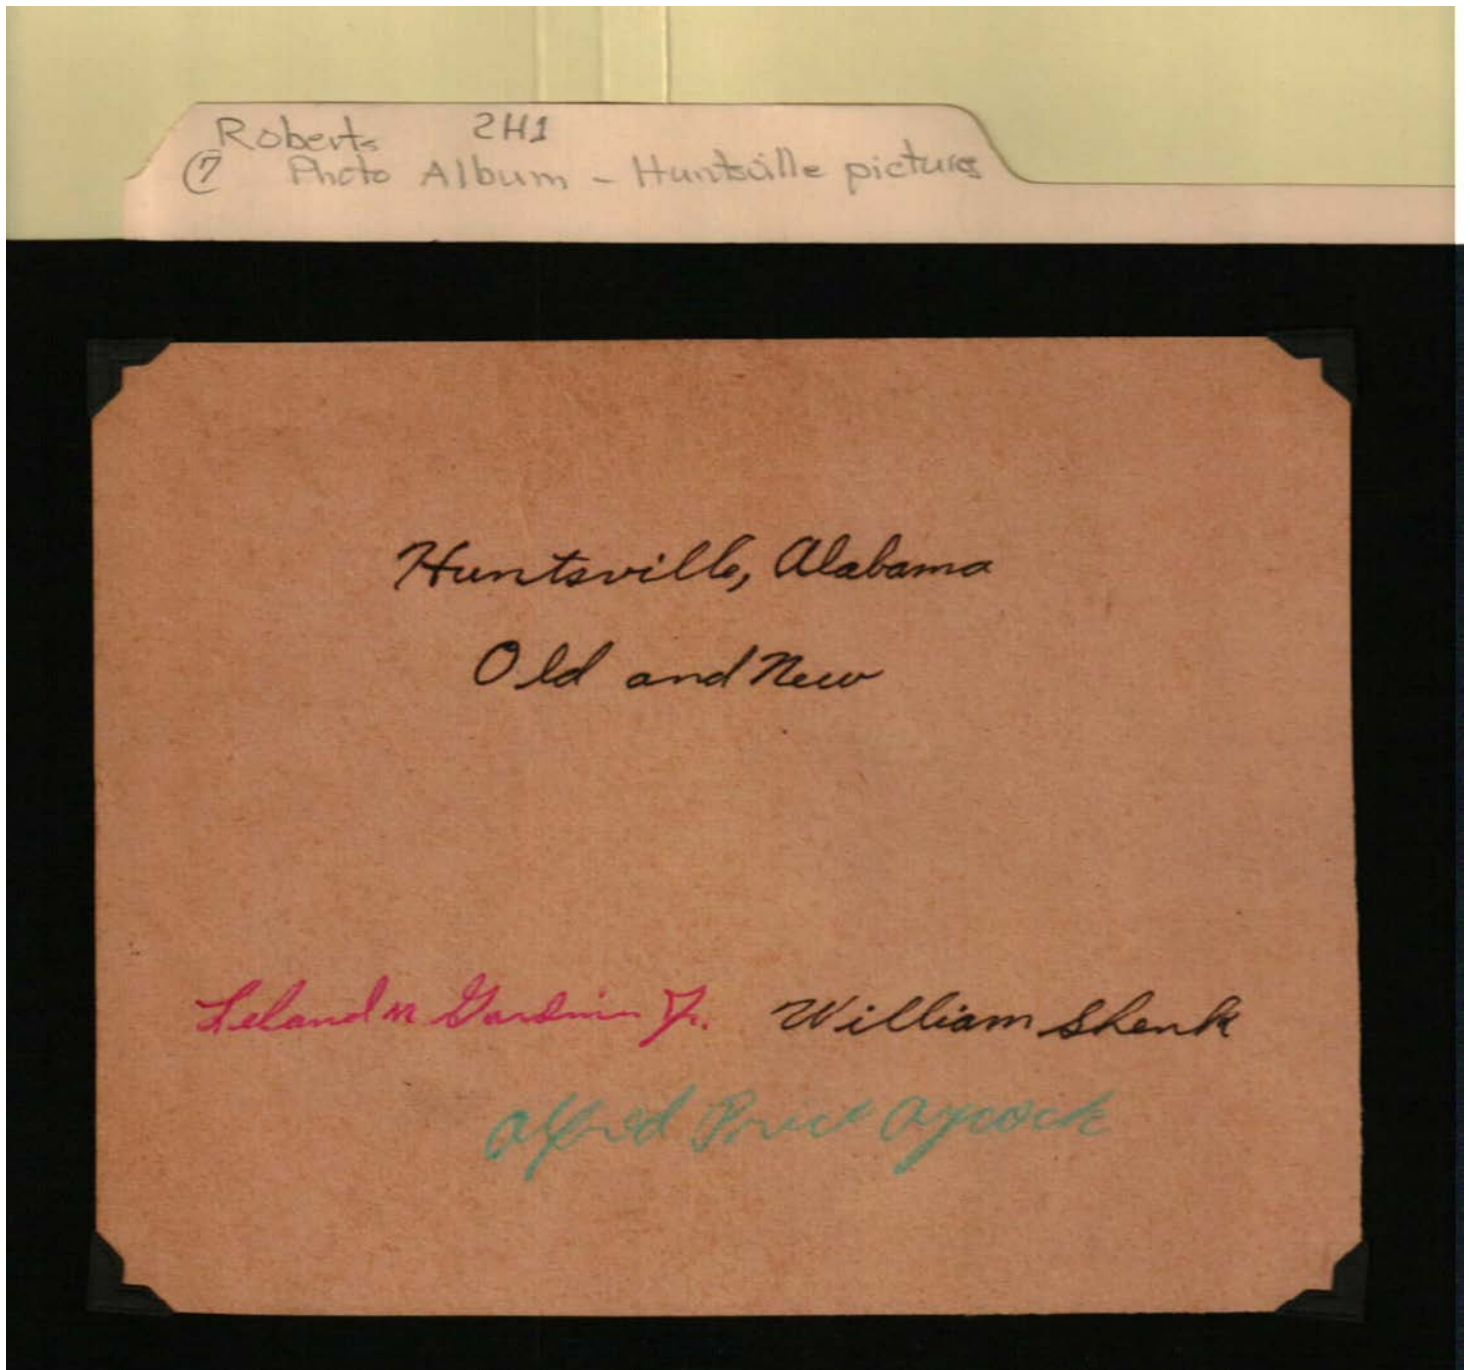 Roberts 2H1
7 Photo Album - Huntsville pictures
Huntsville, Alabama
Old and New
Leland N Gardiner Jr. William Shenk
Alfred Price Aycock